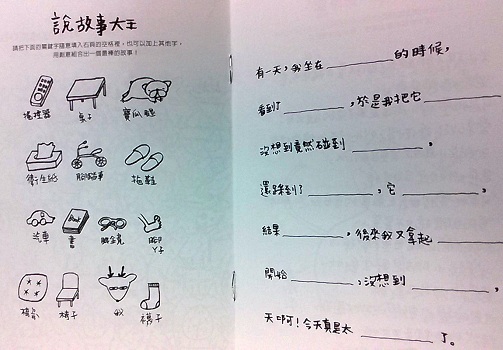 說故事大王
請把下面的關鍵字隨意填入右頁的空格裡，也可以加上其他字，
用創意組合出一個最棒的故事！
遙控器 桌子
衛生紙 腳踏車 拖鞋
汽車 書 眼鏡 腳丫子
椅子 襪子
有一天，我坐在＿＿＿＿的時候，
看到了＿＿＿＿，於是我把它＿＿＿＿
沒想到竟然碰到＿＿＿＿，
還踩到了＿＿＿＿，它＿＿＿＿，
結果＿＿＿＿，後來我又拿起＿＿＿＿
開始＿＿＿＿，沒想到＿＿＿＿，
天啊！今天真是太＿＿＿＿了。